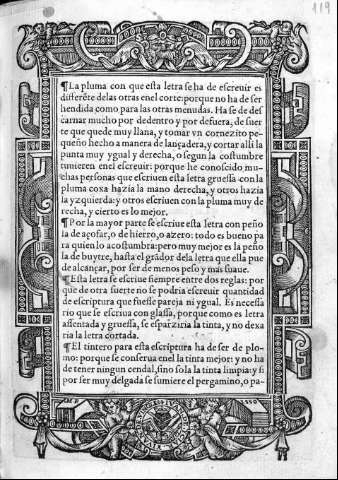 119
¶La pluma con que esta letra se ha de escreuir es
differēte delas otras enel corte: porque no ha de ser
hendida como para las otras menudas. Ha se de des
carnar mucho por de dentro y por defuera, de suer
te que quede muy llana, y tomar vn cornezito pe-
queño hecho a manera de lançadera, y cortar alli la
punta muy ygual y derecha, o segun la costumbre
tuuieren enel escreuir: porque he conoscido mu-
chas personas que escriuen esta letra gruessa con la
pluma coxa hazia la mano derecha, y otros hazia
la yzquierda: y otros escriuen con la pluma muy de
recha, y cierto es lo mejor.
¶Por la mayor parte se escriue esta letra con peño
la de açofar, o de hierro, o azero: todo es bueno pa
ra quien lo acostumbra: pero muy mejor es la peño
la de buytre, hasta el grādor dela letra que ella pue
de alcançar, por ser de menos peso y mas suaue.
¶Esta letra se escriue siempre entre dos reglas: por
que de otra suerte no se podria escreuir quantidad
de escriptura que fuesse pareja ni ygual. Es necessa
rio que se escriua con glassa, porque como es letra
assentada y gruessa, se esparziria la tinta, y no dexa
ria la letra cortada.
¶El tintero para esta escriptura ha de ser de plo-
mo: porque se conserua enel la tinta mejor: y no ha
de tener ningun cendal, sino sola la tinta limpia: y si
por ser muy delgada se sumiere el pergamino, o pa-